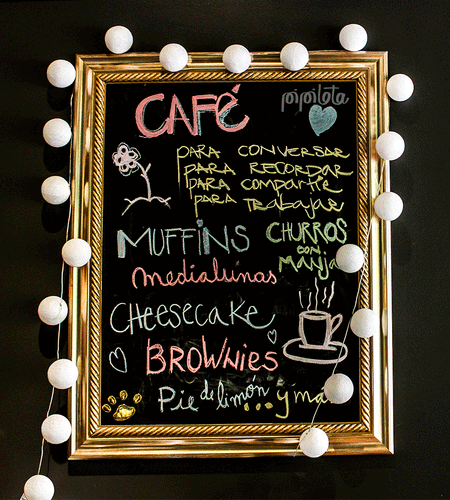 CAFÉ
pipilota
PARA CONVERSAR
PARA RECORDAR
PARA COMPARTIR
PARA TRABAJAR
MUFFINS
CHURROS
CON
MANJA
Medialunas
CHEESECAKE
BROWNIES
Pie de limón
... y má